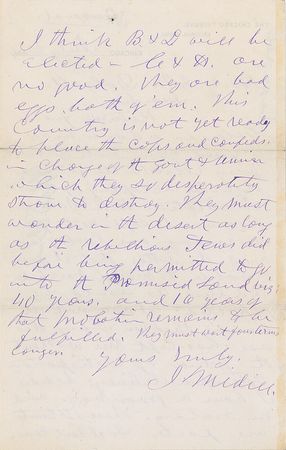 I think B & L will be
elected – C & H. are
no good. They are bad
eggs both of em. This
Country is not yet ready
to place the Cops and Confeds.
in Charge of the Govt & Union
which they so desperately
strove to destroy. They must
wonder in the desert as long
as the rebellious Jews did
before being permitted to go
into the Promised Land viz;
40 years. and 16 years of
that probation remains to be
fulfilled. They must wait four terms
longer.
Yours truly.
J Medill.